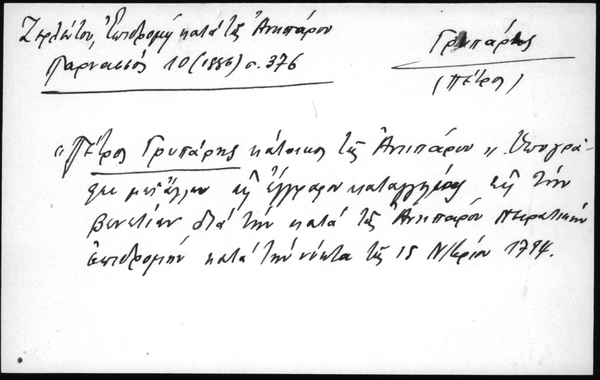 Ζερλέντου, Ἐπιδρομὴ κατὰ τῆς Ἀντιπάρου
Παρνασσὸς 10 (1886) σ. 376
Γρυπάρης
(Πέτρος)
"Πέτρος Γρυπάρης κάτοικος τῆς Ἀντιπάρου" Ὑπογρά-
φει μετ' ἄλλων εἰς ἔγγραφον καταγγελίας εἰς τὴν
Βενετίαν διὰ τὴν κατὰ τῆς Ἀντιπάρου πειρατικὴν
ἐπιδρομὴν κατὰ τὴν νύκτα τῆς 15 Ν/βρίου 1794.